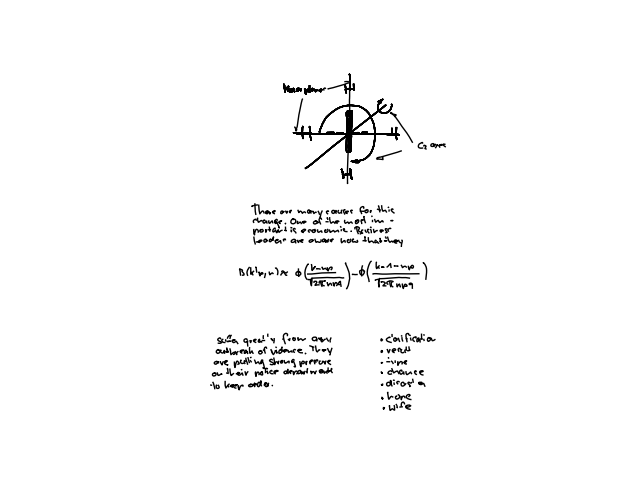 Mirror plane
H
H H H
H
C₂ axis
There are many causes for this
change. One of the most im -
portant is economic. Business
leader are aware now that they
B(k|p,n) ≈ ϕ((k-np)/√(2πnpq)) - ϕ((k-1-np)/√(2πnpq))
suffer greatly from any
outbreak of violence. They
are putting strong pressure
on their police departments
to keep order.
• clarification
• result
• chance
• disaster
• home
• wife